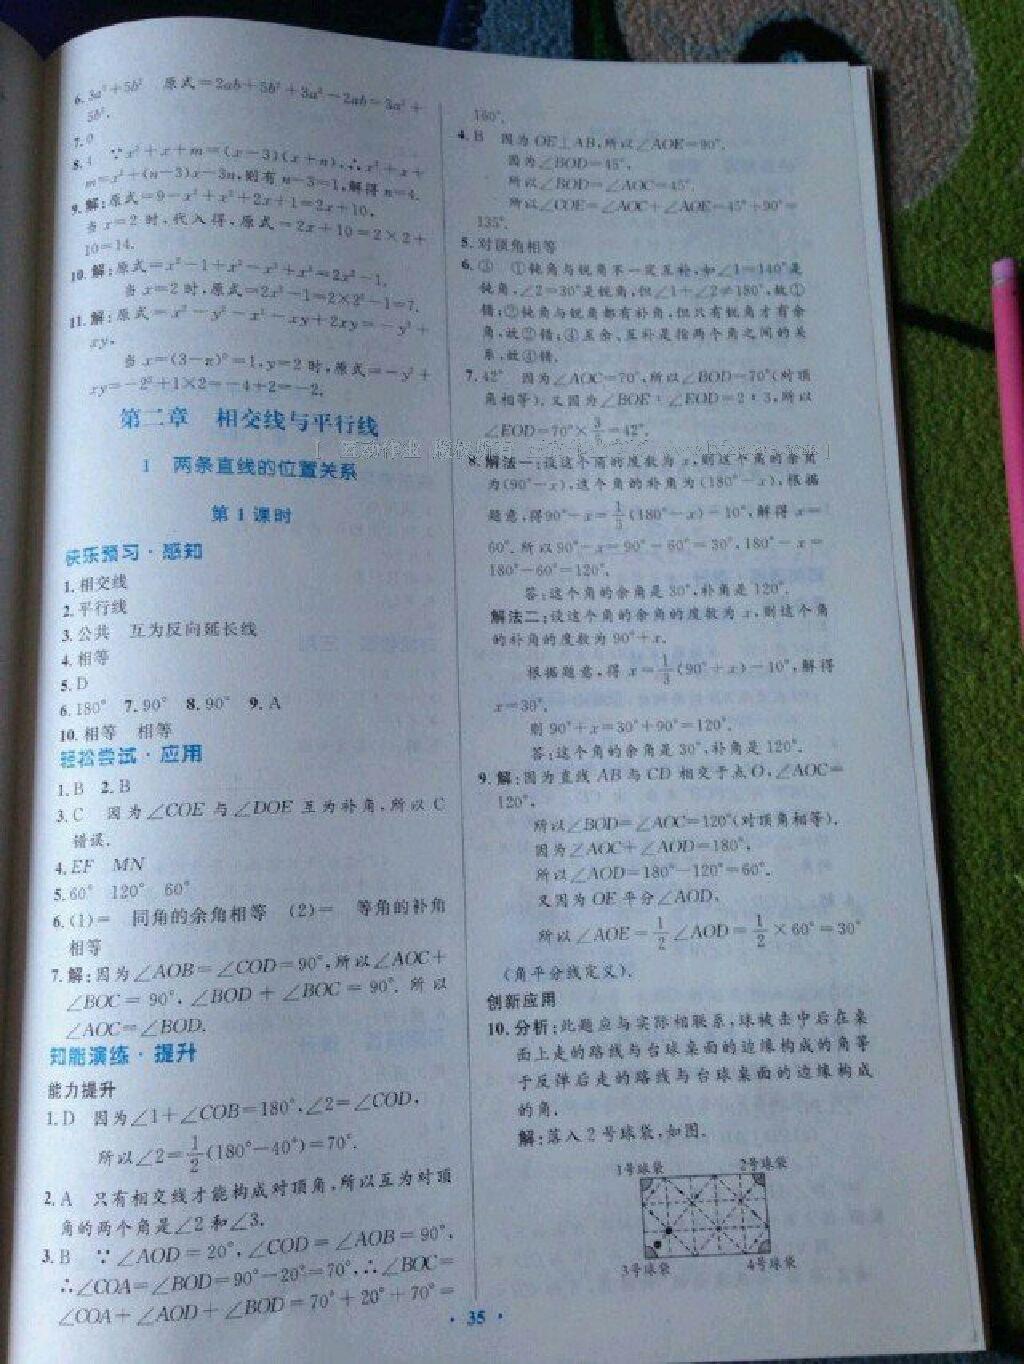 6. 3a²+5b² 原式=2ab+5b²+3a²-2ab=3a²+
5b².
7. 0
8. 4 ∵x²+x+m=(x-3)(x+n),∴x²+x+
m=x²+(n-3)x-3n,则有n-3=1,解得n=4.
9. 解:原式=9-x²+x²+2x+1=2x+10,
当x=2时,代入得,原式=2x+10=2×2+
10=14.
10. 解:原式=x²-1+x²-x³+x³=2x²-1,
当x=2时,原式=2x²-1=2×2²-1=7.
11. 解:原式=x²-y²-x²-xy+2xy=-y²+
xy,
当x=(3-π)⁰=1,y=2时,原式=-y²+
xy=-2²+1×2=-4+2=-2.
第二章 相交线与平行线
1 两条直线的位置关系
第1课时
快乐预习·感知
1. 相交线
2. 平行线
3. 公共 互为反向延长线
4. 相等
5. D
6. 180° 7. 90° 8. 90° 9. A
10. 相等 相等
轻松尝试·应用
1. B 2. B
3. C 因为∠COE与∠DOE互为补角,所以C
错误.
4. EF MN
5. 60° 120° 60°
6. (1)= 同角的余角相等 (2)= 等角的补角
相等
7. 解:因为∠AOB=∠COD=90°,所以∠AOC+
∠BOC=90°,∠BOD+∠BOC=90°.所以
∠AOC=∠BOD.
知能演练·提升
能力提升
1. D 因为∠1+∠COB=180°,∠2=∠COD,
所以∠2=1/2(180°-40°)=70°.
2. A 只有相交线才能构成对顶角,所以互为对顶
角的两个角是∠2和∠3.
3. B ∵∠AOD=20°,∠COD=∠AOB=90°,
∴∠COA=∠BOD=90°-20°=70°,∴∠BOC=
∠COA+∠AOD+∠BOD=70°+20°+70°=
160°.
4. B 因为OE⊥AB,所以∠AOE=90°.
因为∠BOD=45°,
所以∠BOD=∠AOC=45°.
所以∠COE=∠AOC+∠AOE=45°+90°=
135°.
5. 对顶角相等
6. ③ ①钝角与锐角不一定互补,如∠1=140°是
钝角,∠2=30°是锐角,但∠1+∠2≠180°,故①
错;②钝角与锐角都有补角,但只有锐角才有余
角,故②错;④互余、互补是指两个角之间的关
系,故④错.
7. 42° 因为∠AOC=70°,所以∠BOD=70°(对顶
角相等).又因为∠BOE∶∠EOD=2∶3,所以
∠EOD=70°×3/5=42°.
8. 解法一:设这个角的度数为x,则这个角的余角
为(90°-x),这个角的补角为(180°-x),根据
题意,得90°-x=1/3(180°-x)-10°,解得x=
60°.所以90°-x=90°-60°=30°,180°-x=
180°-60°=120°.
答:这个角的余角是30°,补角是120°.
解法二:设这个角的余角的度数为x,则这个角
的补角的度数为90°+x.
根据题意,得x=1/3(90°+x)-10°,解得
x=30°,
则90°+x=30°+90°=120°.
答:这个角的余角是30°,补角是120°.
9. 解:因为直线AB与CD相交于点O,∠AOC=
120°,
所以∠BOD=∠AOC=120°(对顶角相等).
因为∠AOC+∠AOD=180°,
所以∠AOD=180°-120°=60°.
又因为OE平分∠AOD,
所以∠AOE=1/2∠AOD=1/2×60°=30°
(角平分线定义).
创新应用
10. 分析:此题应与实际相联系,球被击中后在桌
面上走的路线与台球桌面的边缘构成的角等
于反弹后走的路线与台球桌面的边缘构成
的角.
解:落入2号球袋,如图.
1号球袋 2号球袋
3号球袋 4号球袋
· 35 ·